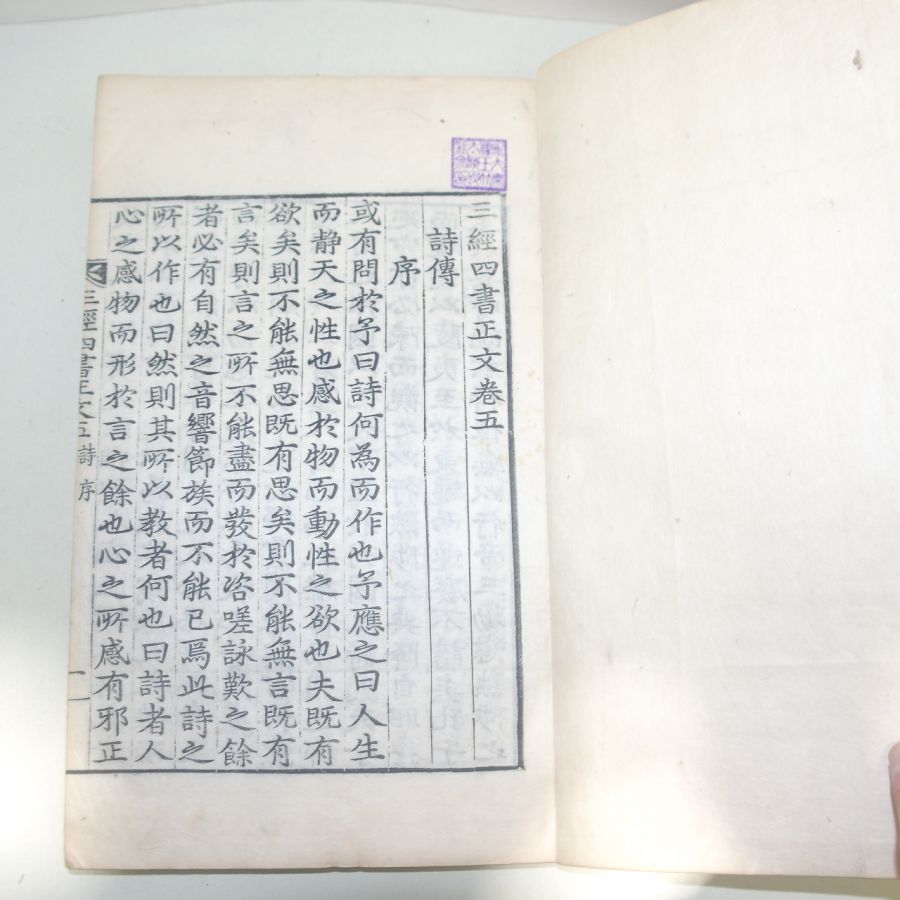 三經四書正文卷五
詩傳
序
或有問於予曰詩何為而作也予應之曰人生
而静天之性也感於物而動性之欲也夫既有
欲矣則不能無思既有思矣則不能無言既有
言矣則言之所不能盡而發於咨嗟詠歎之餘
者必有自然之音響節族而不能已焉此詩之
所以作也曰然則其所以教者何也曰詩者人
心之感物而形於言之餘也心之所感有邪正
三經四書正文五 詩 序 一